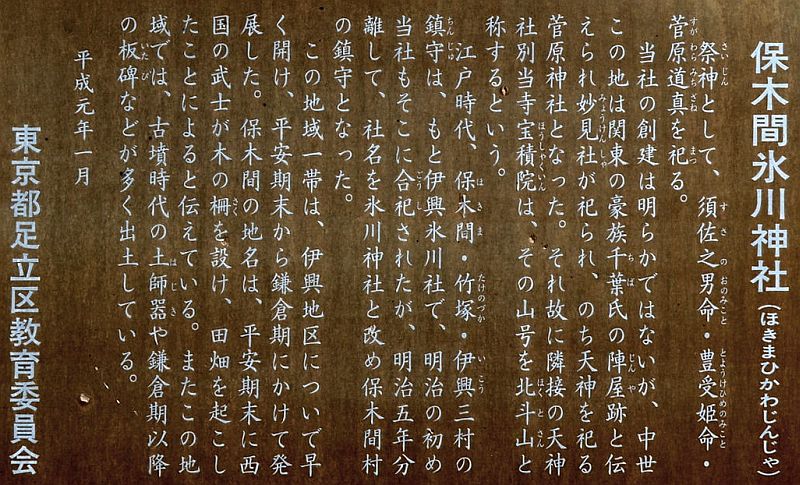 保木間氷川神社（ほきまひかわじんじゃ）
祭神として、須佐之男命・豊受姫命・
菅原道真を祀る。
当社の創建は明らかではないが、中世
この地は関東の豪族千葉氏の陣屋跡と伝
えられ妙見社が祀られ、のち天神を祀る
菅原神社となった。それ故に隣接の天神
社別当寺宝積院は、その山号を北斗山と
称するという。
江戸時代、保木間・竹塚・伊興三村の
鎮守は、もと伊興氷川神社で、明治の初め
当社もそこに合祀されたが、明治五年分
離して、社名を氷川神社と改め保木間村
の鎮守となった。
この地域一帯は、伊興地区についで早
く開け、平安期末から鎌倉期にかけて発
展した。保木間の地名は、平安期末に西
国の武士が木の柵を設け、田畑を起こし
たことによると伝えている。またこの地
域では、古墳時代の土師器や鎌倉期以降
の板碑などが多く出土している。
平成元年一月
東京都足立区教育委員会